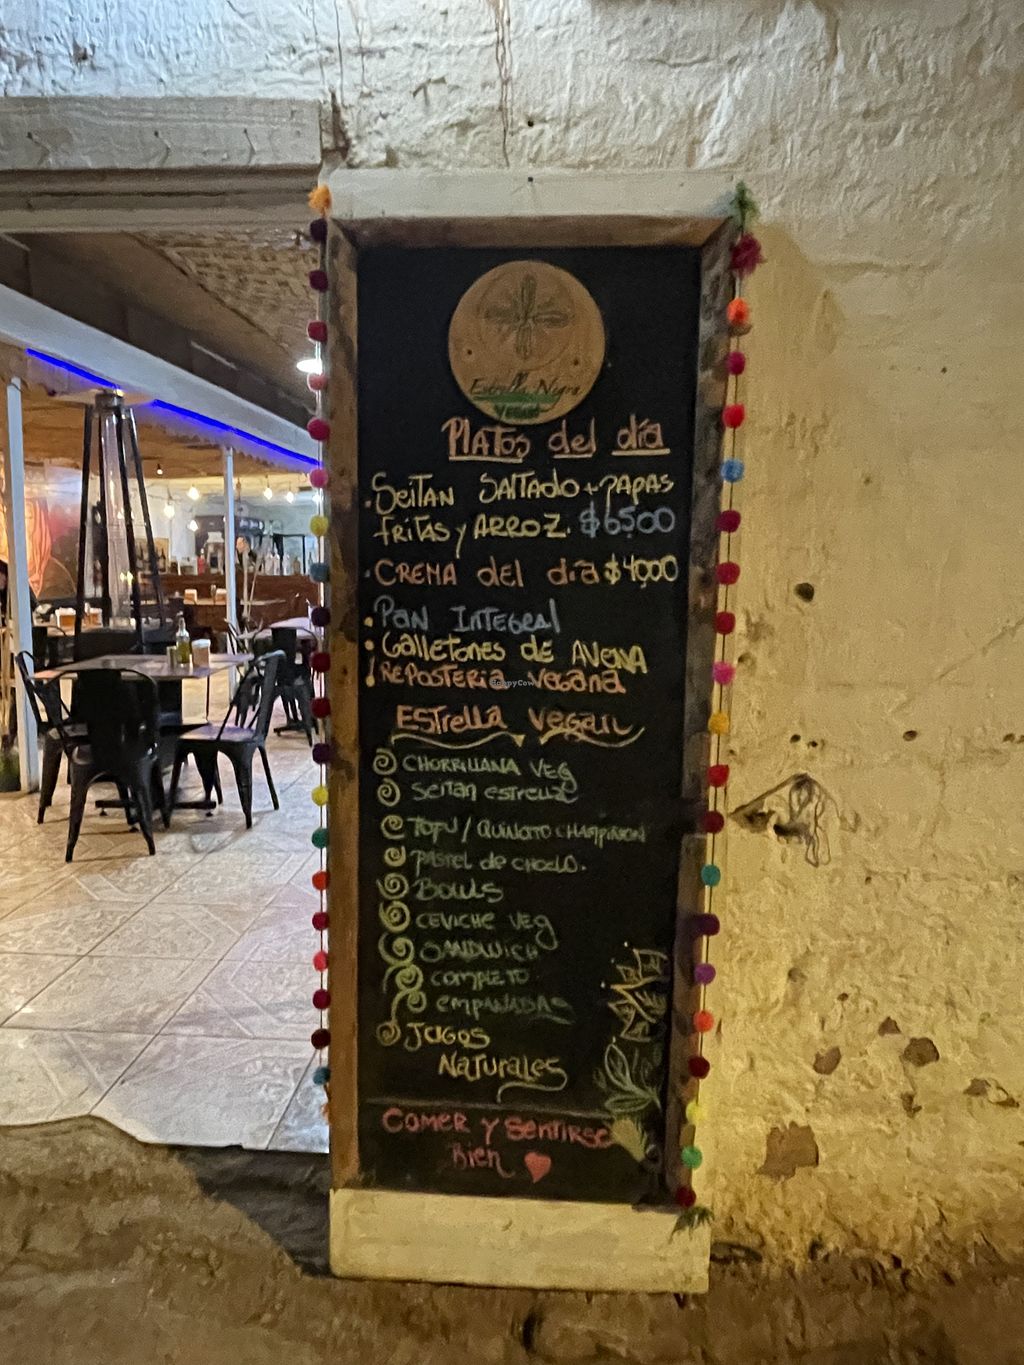 Estrella Negra
VEGANO
PLATOS del día
· SEITAN SALTADO + PAPAS
FRITAS y ARROZ. $6500
· CREMA del día $4000
· PAN INTEGRAL
· Galletones DE AVENA
· REPOSTERIA Vegana
ESTRELLA Vegan
CHORRILLANA VEG
Seitan estrella
TOFU / QUINOTO CHAMPIÑON
PASTEL de CHOCLO.
BOWLS
CEVICHE VEG
SANDWICH
COMPLETO
EMPANADAS
JUGOS
NATURALES
COMER Y SENTIRSE
Bien
HappyCow